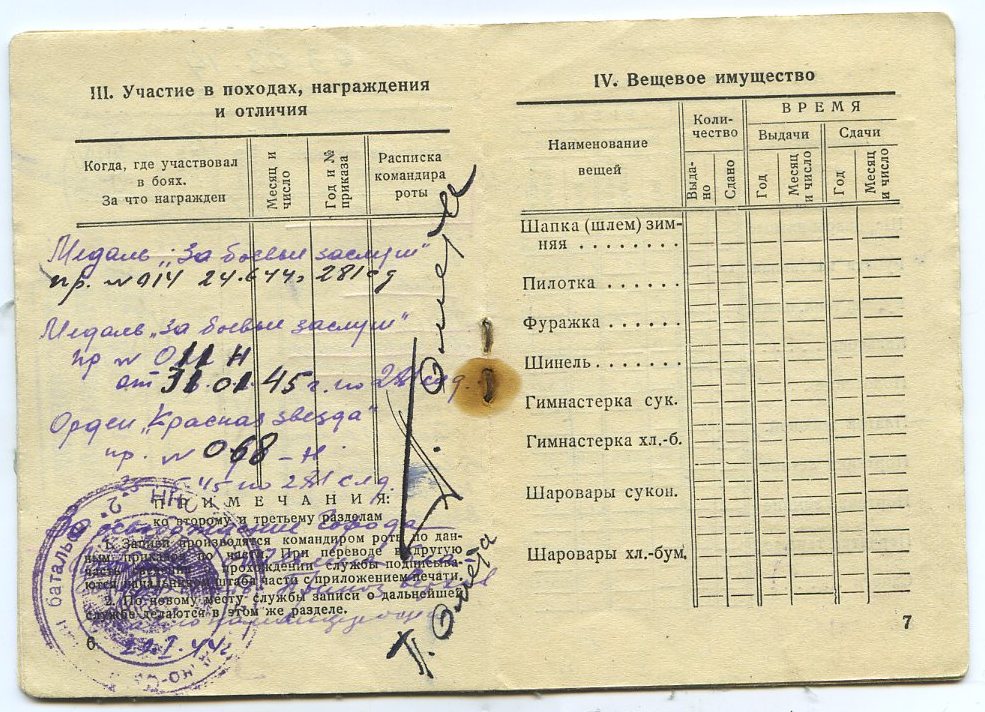 III. Участие в походах, награждения
и отличия
Когда, где участвовал
в боях.
За что награжден
Месяц и
число
Год и №
приказа
Расписка
командира
роты
Медаль „За боевые заслуги"
пр. № 014 24.6.44г 281 сд
Медаль „За боевые заслуги"
пр № 011 Н
от 31.01.45 г. по 281 сд.
Орден „Красная звезда"
пр. № 068 – Н
45 по 281 сд.
ПРИМЕЧАНИЯ:
ко второму и третьему разделам
1. Записи производятся командиром роты по дан-
ным приказов по части. При переводе в другую
часть прохождении службы подписыва-
ются начальником штаба части с приложением печати.
2. По новому месту службы записи о дальнейшей
службе делаются в этом же разделе.
6
батальон
IV. Вещевое имущество
Наименование
вещей
Коли-
чество
Выда-
но
Сдано
ВРЕМЯ
Выдачи
Сдачи
Год
Месяц
и число
Год
Месяц
и число
Шапка (шлем) зим-
няя . . . . . . . .
Пилотка . . . . . .
Фуражка . . . . . .
Шинель . . . . . . .
Гимнастерка сук.
Гимнастерка хл.-б.
Шаровары сукон.
Шаровары хл.-бум.
7